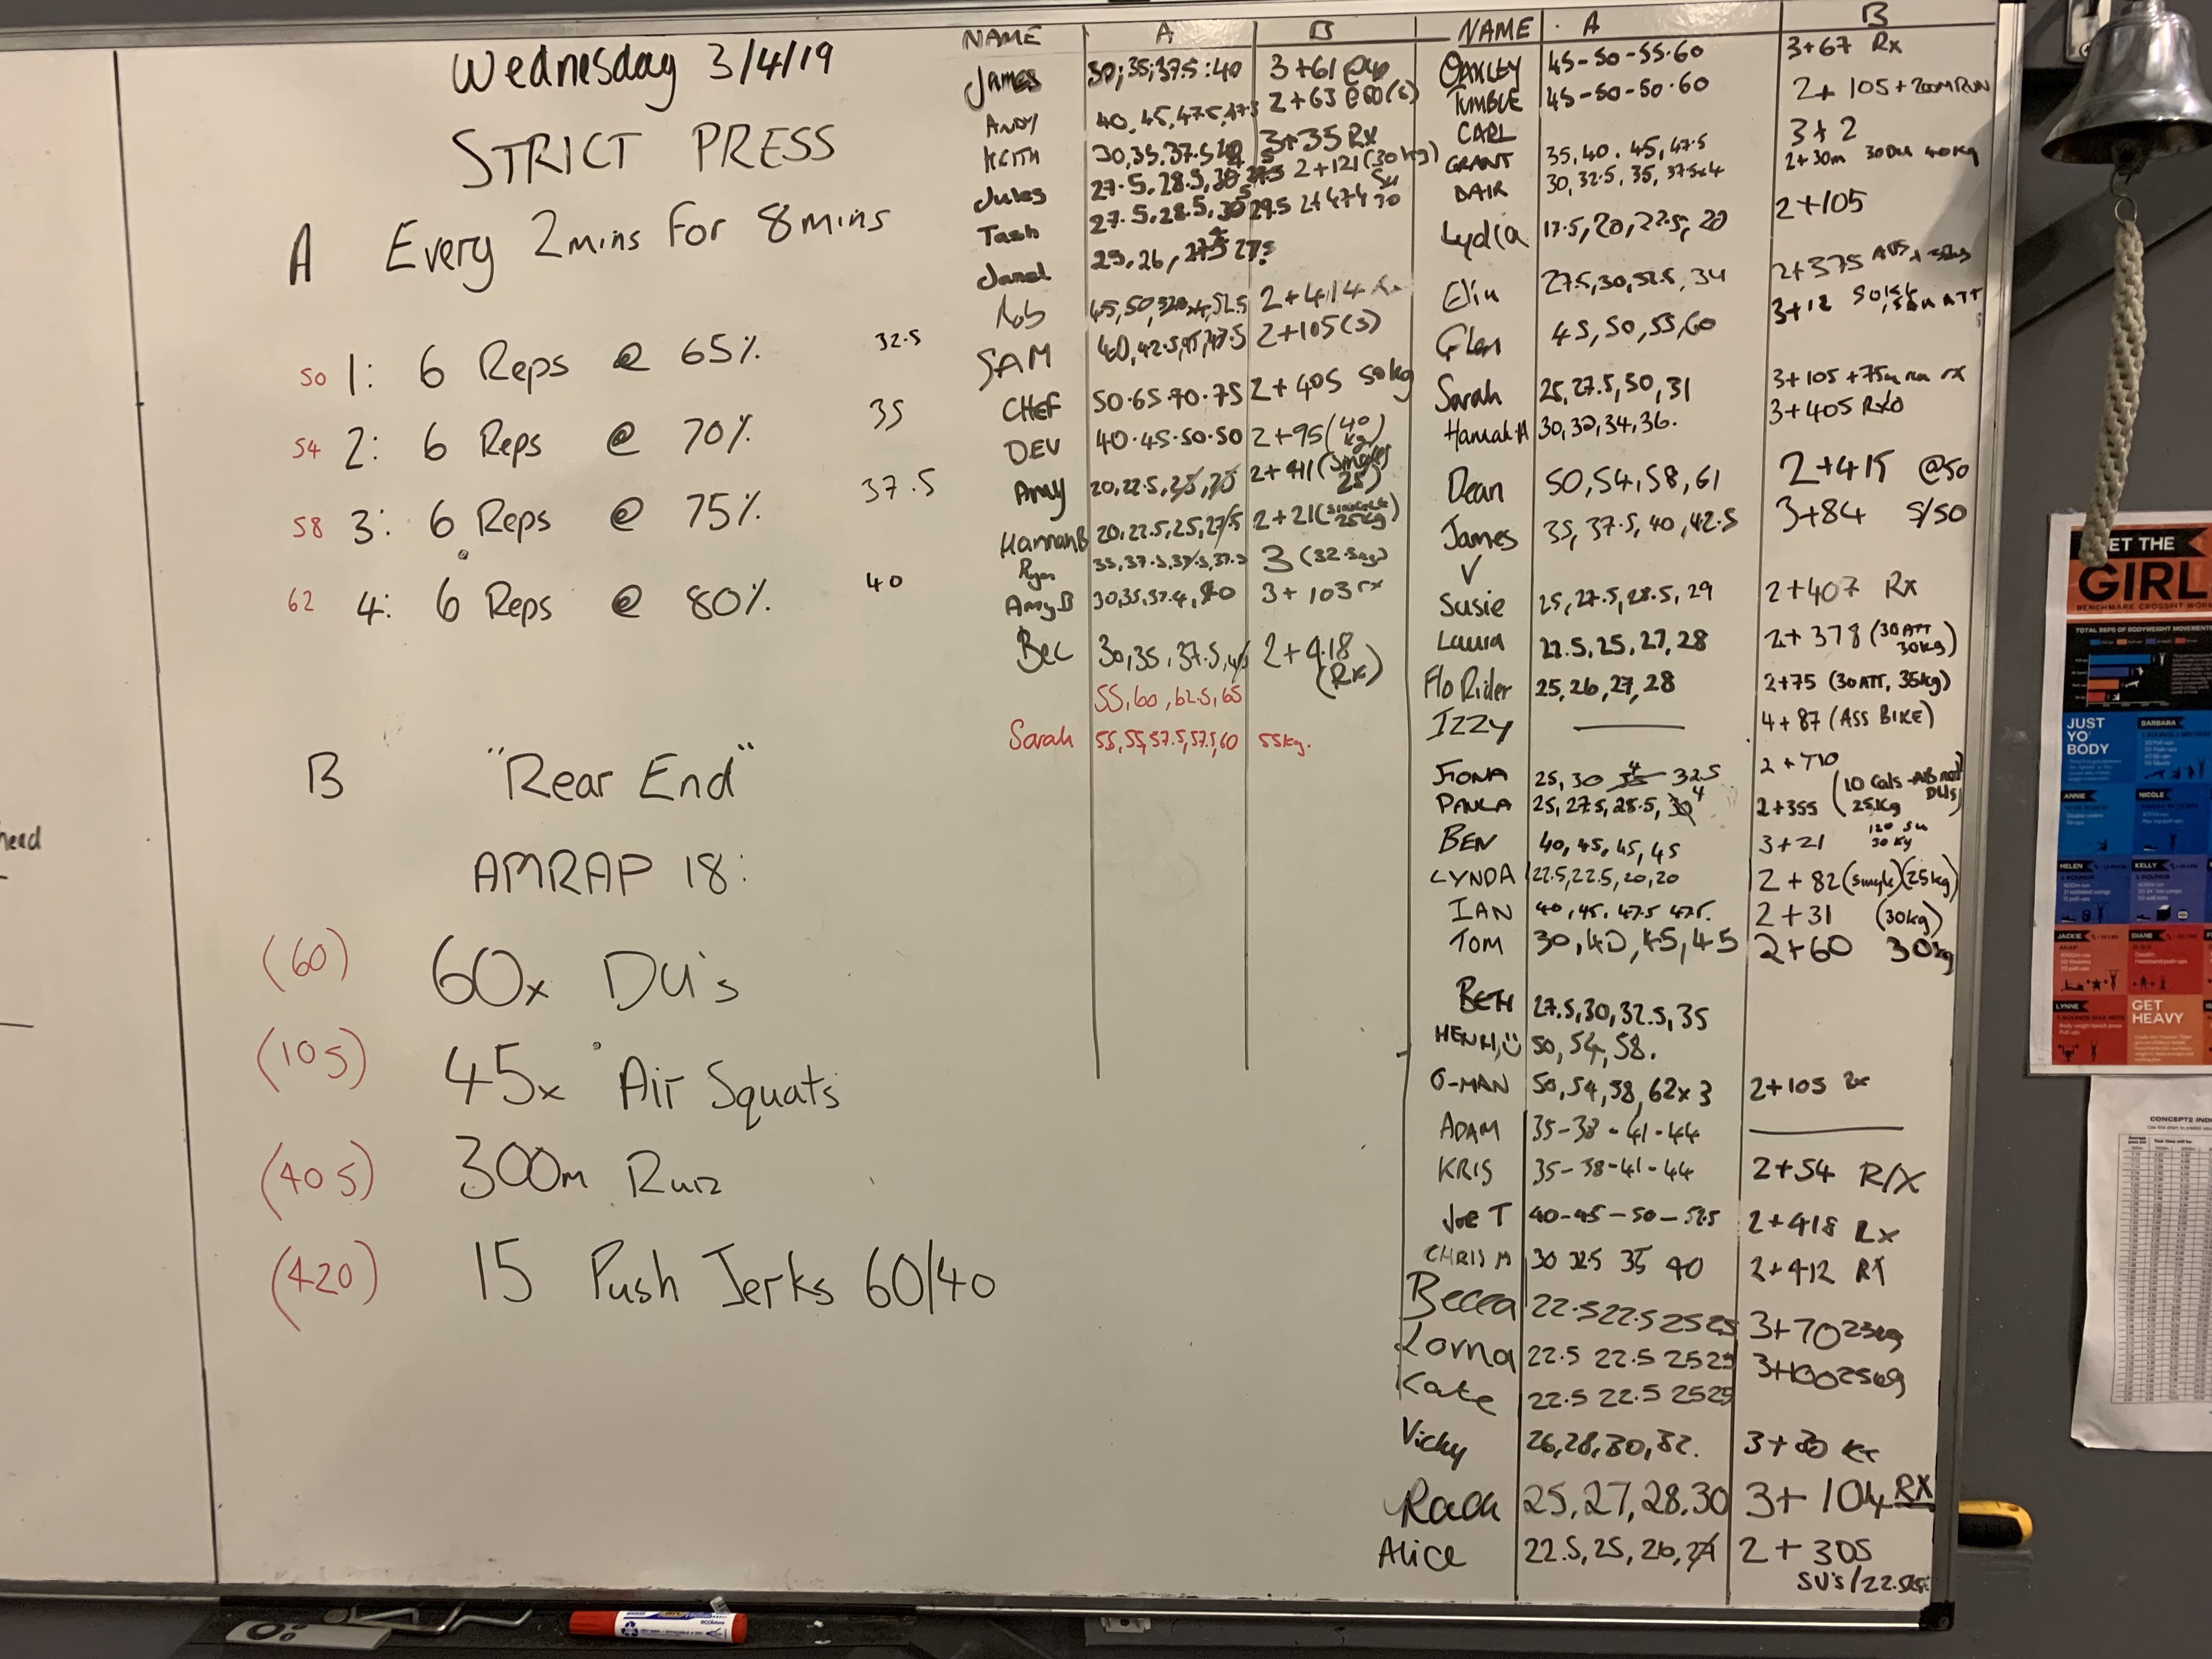 Wednesday 3/4/19
STRICT PRESS
A Every 2mins For 8mins
50 1: 6 Reps @ 65% 32.5
54 2: 6 Reps @ 70% 35
58 3: 6 Reps @ 75% 37.5
62 4: 6 Reps @ 80% 40
B "Rear End"
AMRAP 18:
(60) 60x DU's
(105) 45x Air Squats
(405) 300m Run
(420) 15 Push Jerks 60/40
head
NAME A B
James 30; 35; 37.5; 40 3+61 @40
ANDY 40, 45, 47.5, 2+63 @60(s)
KEITH 30, 35, 37.5 3+35 Rx
Jules 27.5, 28.5, 30 2+121 (30kg)
Tash 27.5, 28.5, 29.5
Janel
Rob 45, 50, 52.5 2+414
SAM 40, 42.5, 45, 47.5 2+105(s)
CHEF 50.65.70.75 2+405 50kg
DEV 40.45.50.50 2+95 (40 kg)
Amy 20, 22.5, 25, 25 2+411 (singles 25)
HannahB 20, 22.5, 25, 27.5 2+21 (singles 25kg)
Ryan 35, 37.5, 37.5, 37.5 3 (32.5kg)
Amy.B 30, 35, 37.4, 40 3+103 rx
Bec 30, 35, 37.5, 40 2+418 (Rx)
55, 60, 62.5, 65
Sarah 55, 55, 57.5, 57.5, 60 55kg.
NAME A B
OAKLEY 45-50-55.60 3+67 Rx
TUMBLE 45-50-50.60 2+105+200M RUN
CARL 3+2
GRANT 35, 40. 45, 47.5 2+30m 30DU 40kg
DAIR 30, 32.5, 35, 37.5x4
Lydia 17.5, 20, 22.5, 20 2+105
Elin 27.5, 30, 32.5, 34 2+375
Glen 45, 50, 55, 60 3+12
Sarah 25, 27.5, 30, 31 3+105 +75m run rx
Hannah H 30, 32, 34, 36. 3+405
Dean 50, 54, 58, 61 2+415 @50
James V 35, 37.5, 40, 42.5 3+84 S/50
Susie 25, 27.5, 28.5, 29 2+407 Rx
Laura 22.5, 25, 27, 28 2+378 (30ATT 30kg)
Flo Rider 25, 26, 27, 28 2+75 (30ATT, 35kg)
IZZY — 4+87 (ASS BIKE)
FIONA 25, 30 35 4 32.5 2+
PAULA 25, 27.5, 28.5, 30 4 2+355 (10 Cals -AB not DUs) 25kg
BEN 40, 45, 45, 45 3+21 120 su 30 kg
LYNDA 22.5, 22.5, 20, 20 2+82 (single) (25kg)
IAN 40, 45, 47.5 47.5. 2+31 (30kg)
TOM 30, 40, 45, 45 2+60 30kg
BETH 27.5, 30, 32.5, 35
HENRI, 50, 54, 58.
G-MAN 50, 54, 58, 62x3 2+105 Rx
ADAM 35-38-41-44 —
KRIS 35-38-41-44 2+54 R/X
JOE T 40-45-50-52.5 2+418 Rx
CHRIS M 30 32.5 35 40 2+412 RX
Becca 22.5 22.5 25 25 3+70 25kg
Lorna 22.5 22.5 25 25 3+100 25kg
Kate 22.5 22.5 25 25
Vicky 26, 28, 30, 32. 3+30
Rach 25, 27, 28.30 3+104 RX
Alice 22.5, 25, 26, 27 2+305
SU's/22.5kg
GIRL
BENCHMARK CROSSFIT WOR
TOTAL REPS OF BODYWEIGHT MOVEMENT
JUST YO' BODY
BARBARA
ANNIE
NICOLE
HELEN
KELLY
JACKIE
DIANE
LYNNE
GET HEAVY
CONCEPT2 IND